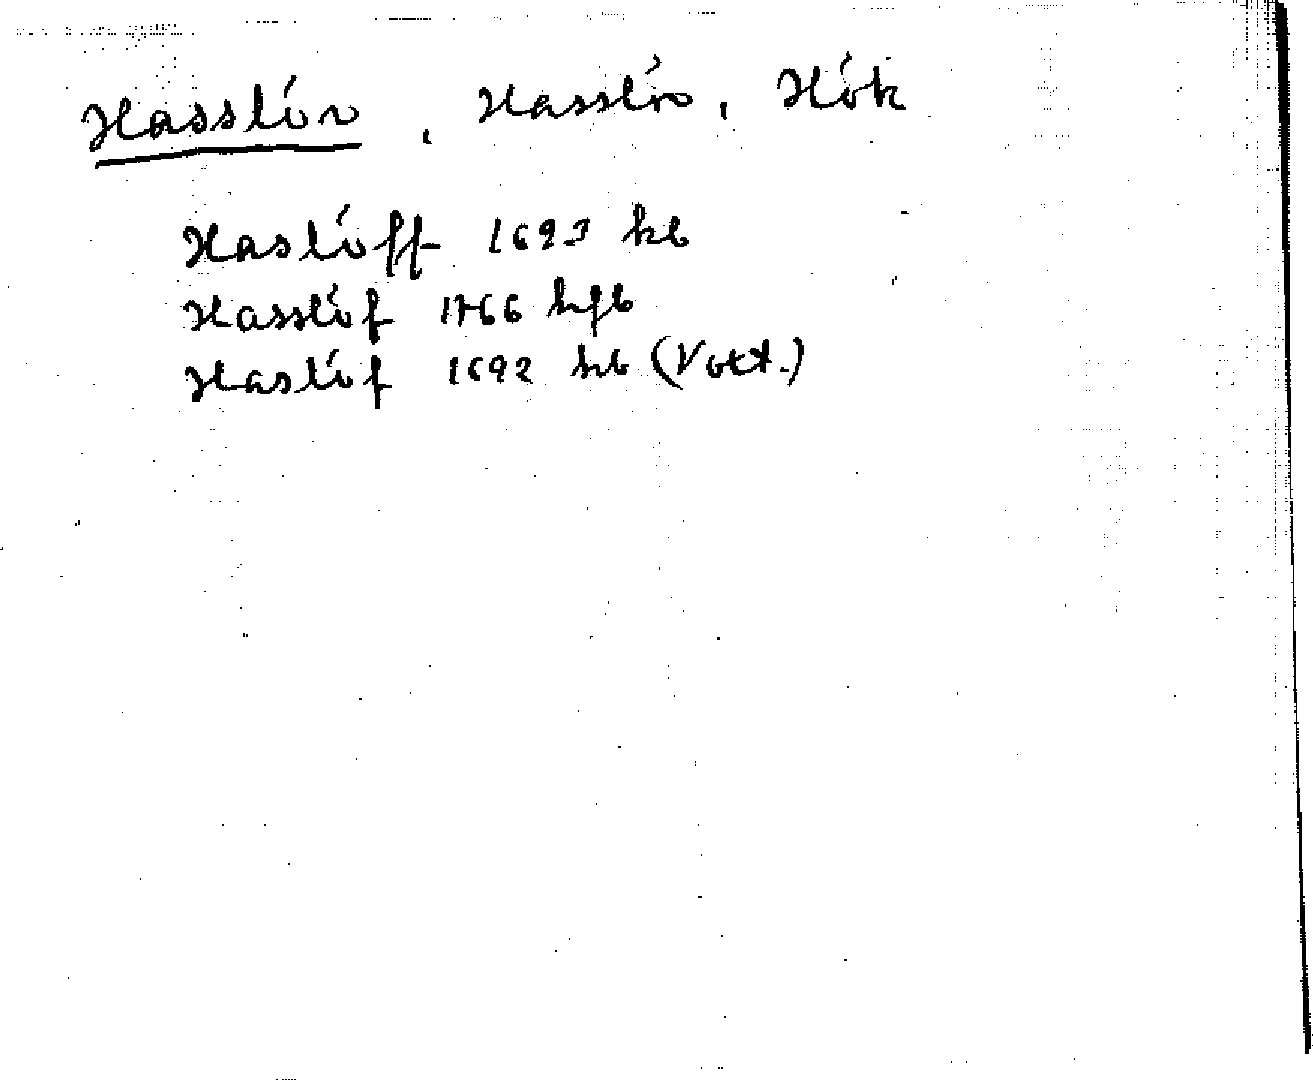 Hasslöv , Hasslöv, Hök
Haslöff 1693 kb
Hasslöf 1766 hfb
Haslöf 1692 kb (Voxt.)